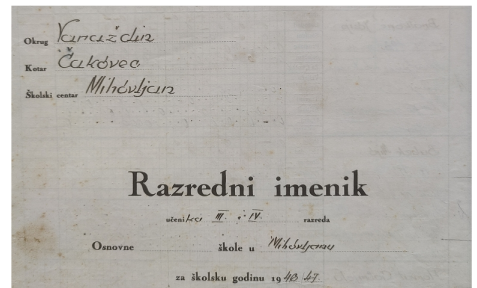 Okrug Varaždin
Kotar Čakovec
Školski centar Mihovljan
Razredni imenik
učenika III. i IV. razreda
Osnovne škole u Mihovljanu
za školsku godinu 1946 47.